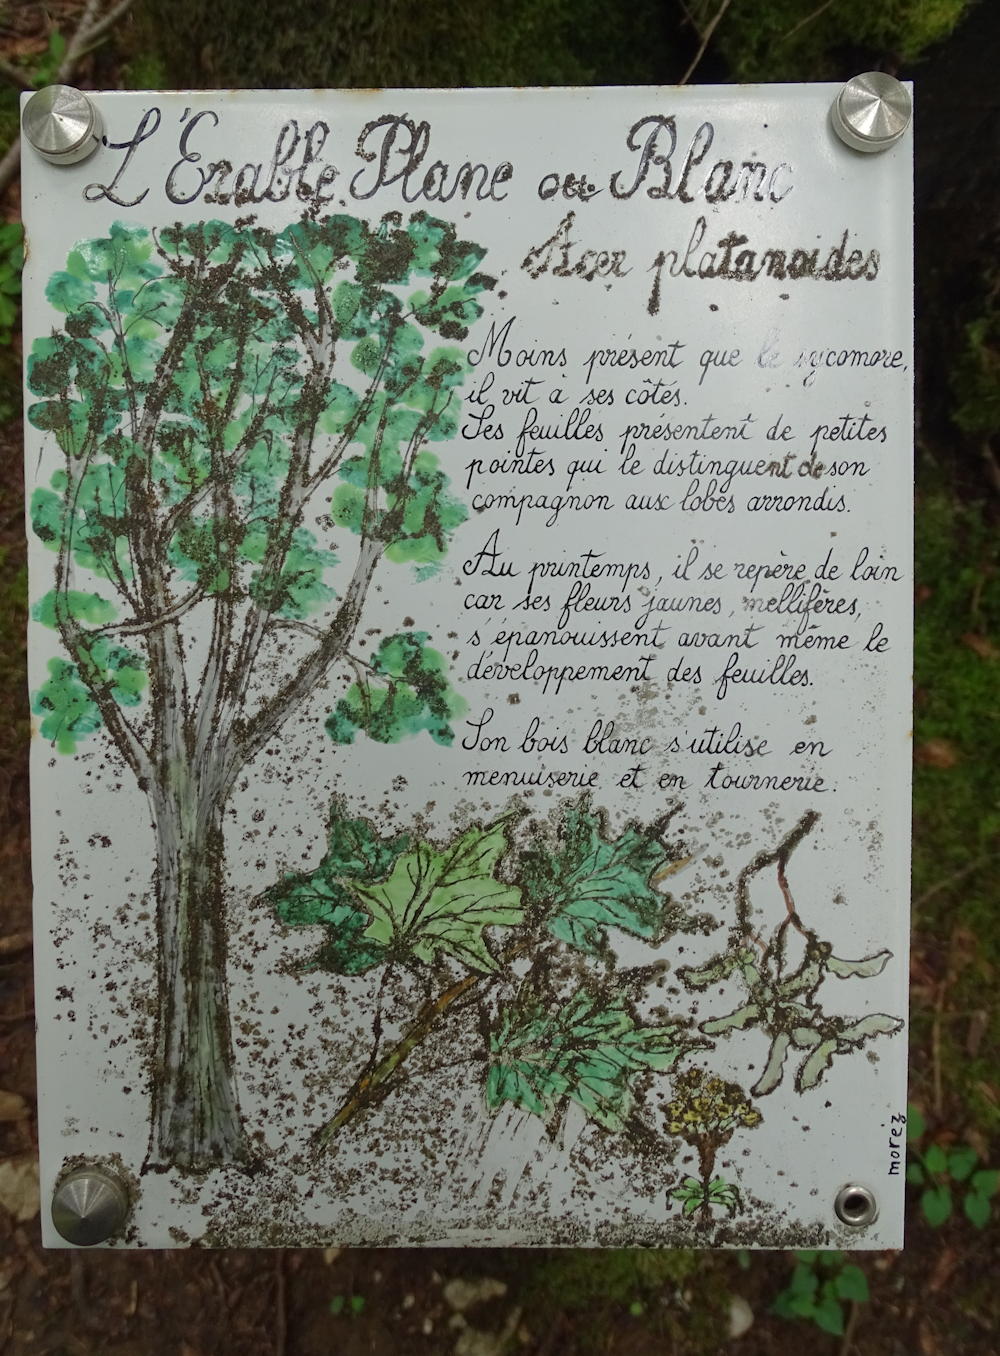 L'Erable Plane ou Blanc
Acer platanoides
Moins présent que le sycomore,
il vit à ses côtés.
Ses feuilles présentent de petites
pointes qui le distinguent de son
compagnon aux lobes arrondis.
Au printemps, il se repère de loin
car ses fleurs jaunes, mellifères,
s'épanouissent avant même le
développement des feuilles.
Son bois blanc s'utilise en
menuiserie et en tournerie.
morez